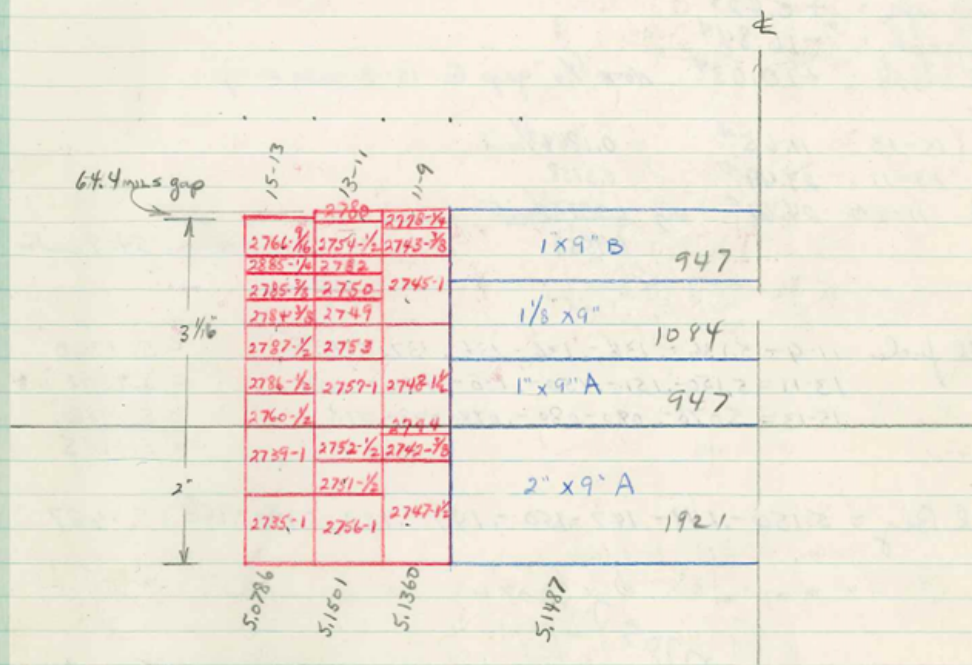 ℄
15-13
13-11
11-9
64.4 mils gap
3 1/16"
2"
2766-9/16
2885-1/4
2785-3/8
2784-3/8
2787-1/2
2786-1/2
2760-1/2
2739-1
2735-1
2780
2754-1/2
2782
2750
2749
2753
2757-1
2752-1/2
2751-1/2
2756-1
2778-1/4
2743-3/8
2745-1
2744
2742-3/8
2747-1½
1 X 9" B
947
1/8 X 9"
1084
1" X 9" A
947
2" X 9" A
1921
5.0786
5.1501
5.1360
5.1487